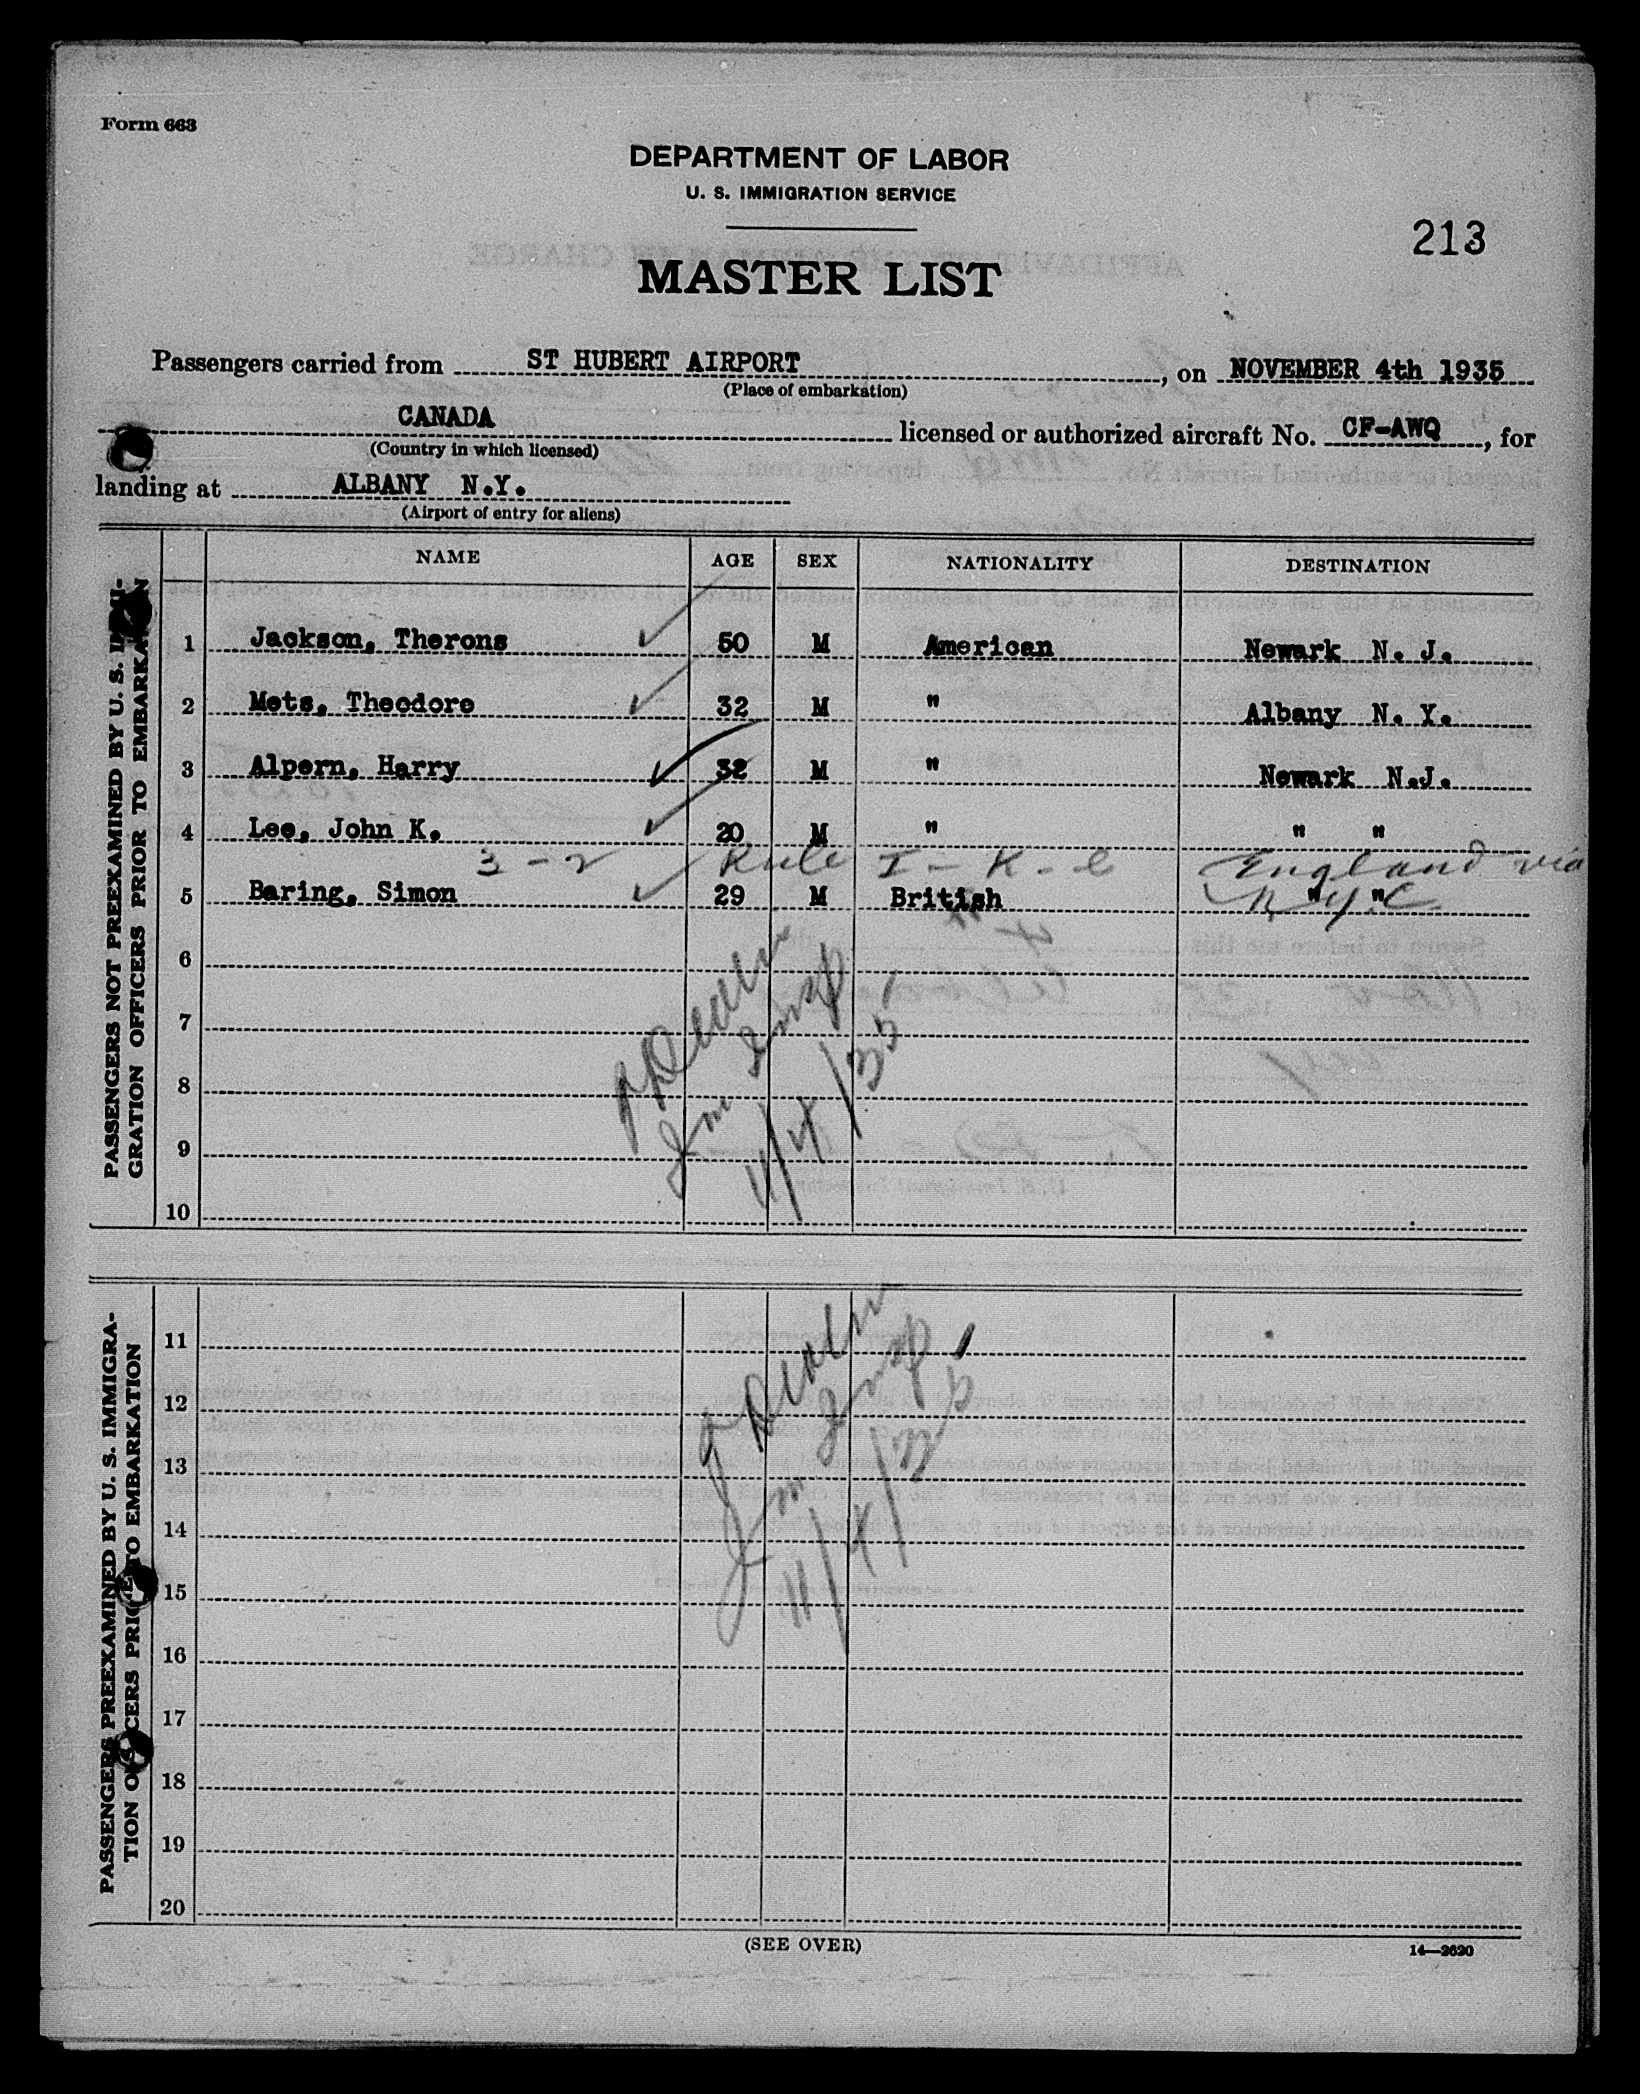 Form 663
DEPARTMENT OF LABOR
U. S. IMMIGRATION SERVICE
213
MASTER LIST
Passengers carried from ST HUBERT AIRPORT, on NOVEMBER 4th 1935
(Place of embarkation)
CANADA licensed or authorized aircraft No. CF-AWQ, for
(Country in which licensed)
landing at ALBANY N.Y.
(Airport of entry for aliens)
NAME AGE SEX NATIONALITY DESTINATION
PASSENGERS NOT PREEXAMINED BY U. S. IMMI-
GRATION OFFICERS PRIOR TO EMBARKATION
1 Jackson, Therons ✓ 50 M American Newark N. J.
2 Mets, Theodore ✓ 32 M " Albany N. Y.
3 Alpern, Harry ✓ 32 M " Newark N.J.
4 Lee, John K. ✓ 20 M " " "
3-2 Rule I-K-e England via
5 Baring, Simon ✓ 29 M British " " N.Y.C.
6
7
8
9
10
Imm Insp
11/4/35
PASSENGERS PREEXAMINED BY U. S. IMMIGRA-
TION OFFICERS PRIOR TO EMBARKATION
11
12
13
14
15
16
17
18
19
20
Imm Insp
11/4/35
(SEE OVER)
14—2620